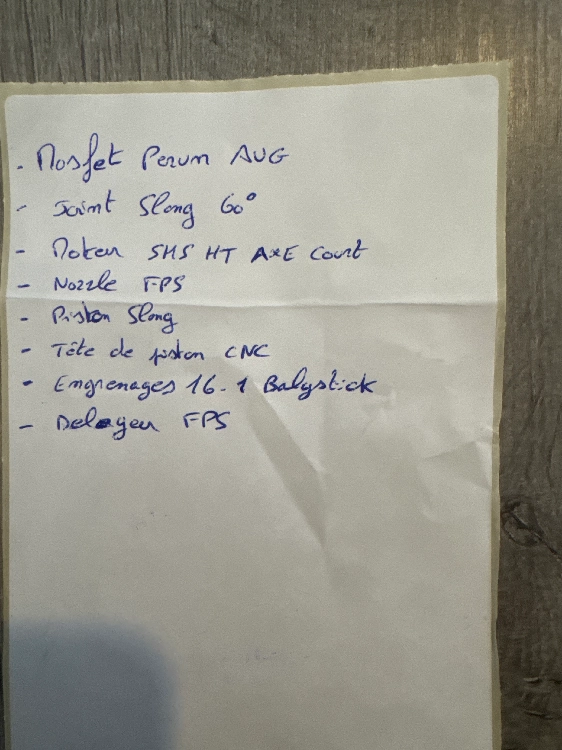 - Mosfet Perun AUG
- Joint Slong 60°
- Moteur SHS HT AXE Court
- Nozzle FPS
- Piston Slong
- Tête de piston CNC
- Engrenages 16.1 Balystick
- Delayeur FPS